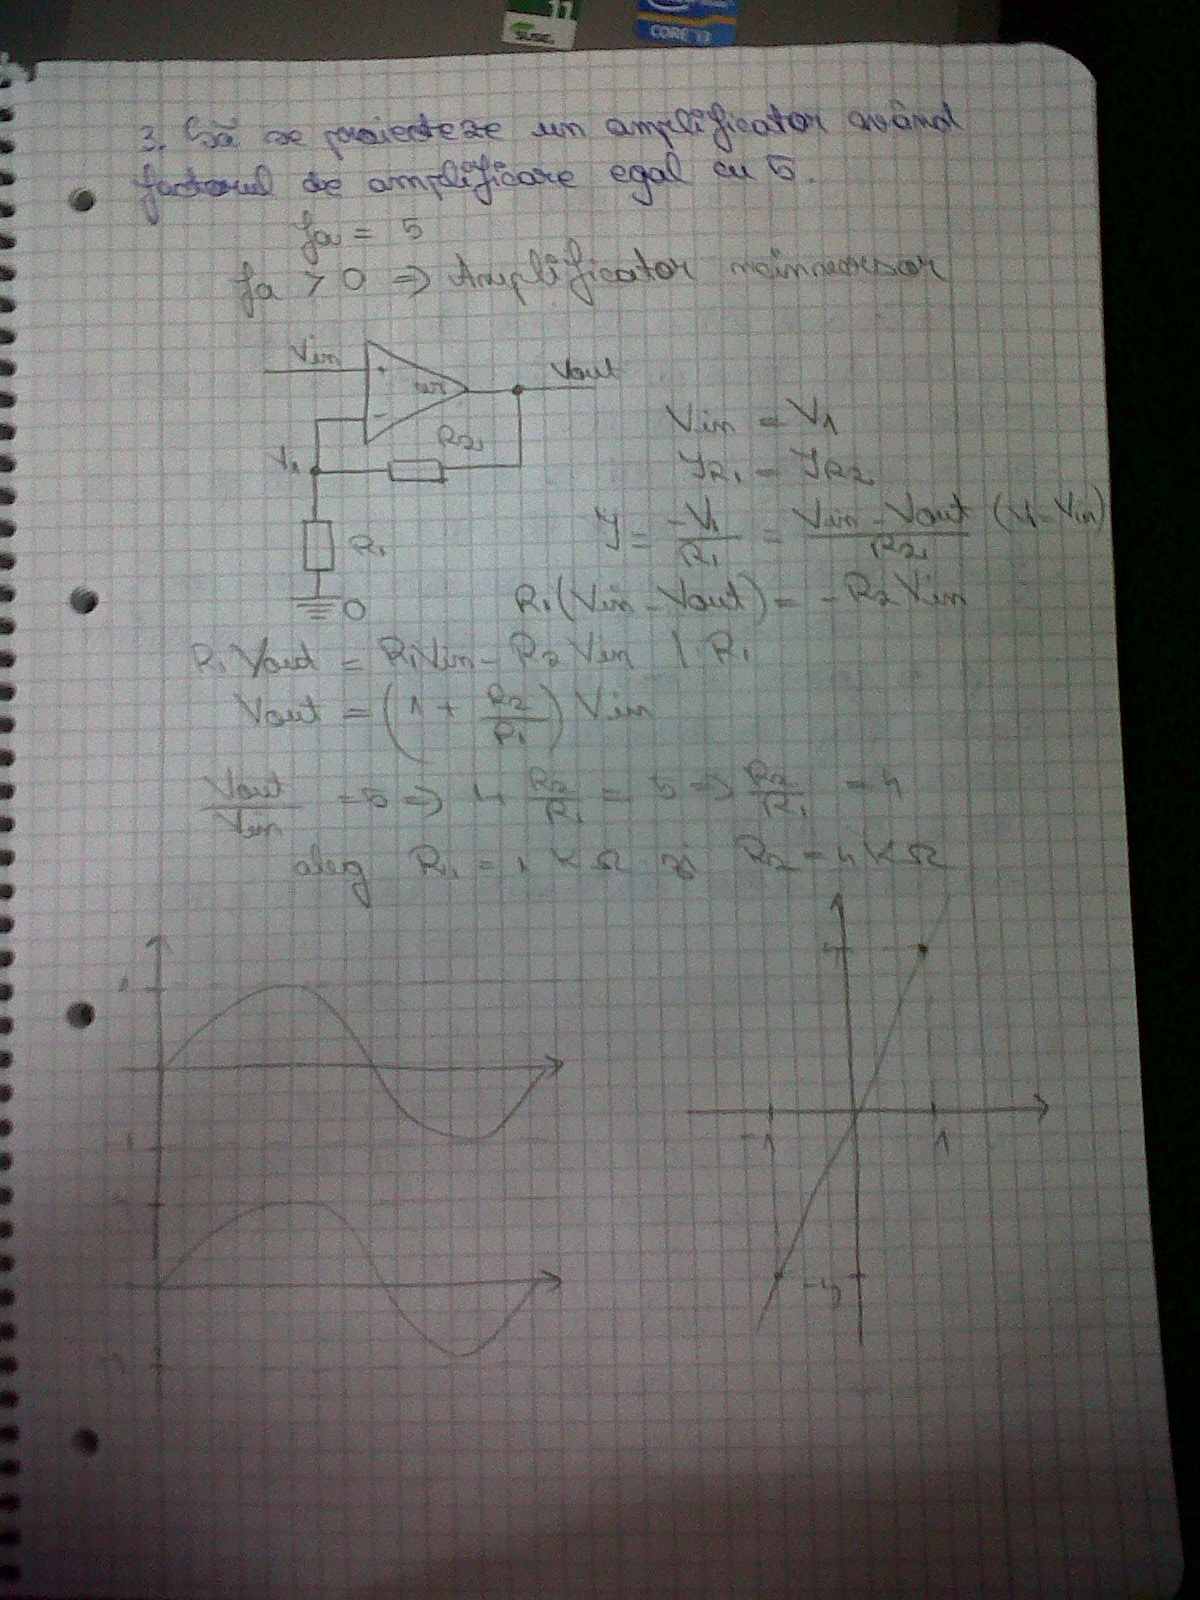 11
SUSE
CORE i3
3. Să se proiecteze un amplificator având
factorul de amplificare egal cu 5.
fa = 5
fa > 0 => Amplificator neinversor
Vin
+
-
Vout
R2
V1
R1
0
Vin = V1
IR1 = IR2
I = -V1/R1 = (Vin - Vout)/R2 (V1 = Vin)
R1(Vin - Vout) = -R2 Vin
R1 Vout = R1 Vin - R2 Vin | : R1
Vout = (1 + R2/R1) Vin
Vout/Vin = 5 => 1 + R2/R1 = 5 => R2/R1 = 4
aleg R1 = 1 KΩ și R2 = 4 KΩ
5
-1
1
-5